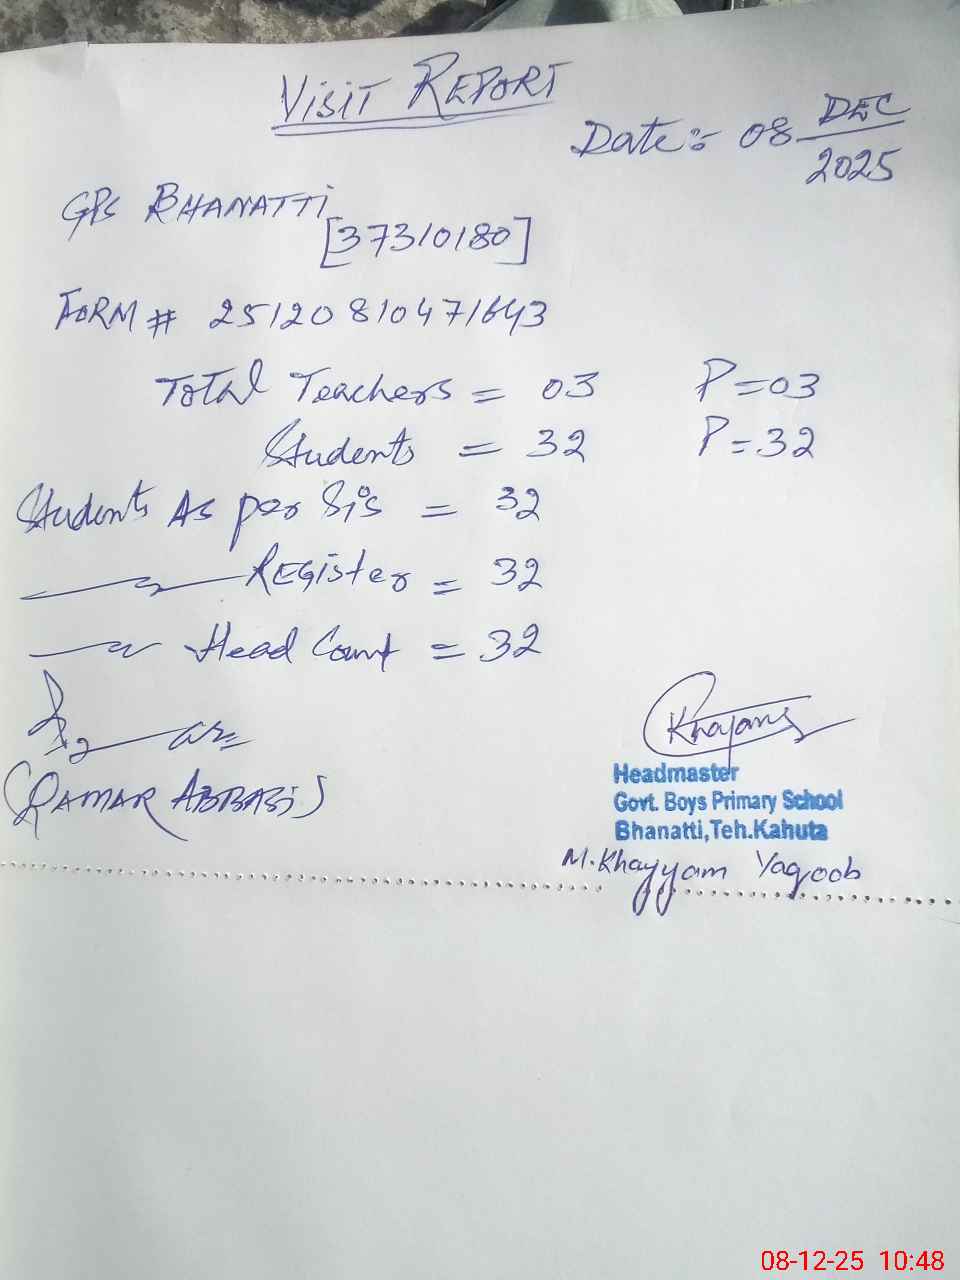 VISIT REPORT
Date:- 08 DEC
2025
GPS BHANATTI
[37310180]
FORM # 25120810471643
Total Teachers = 03 P=03
Students = 32 P=32
Students As per Sis = 32
Register = 32
Head Count = 32
(QAMAR ABBASI)
Khayam
Headmaster
Govt. Boys Primary School
Bhanatti,Teh.Kahuta
M.Khayyam Yaqoob
08-12-25 10:48